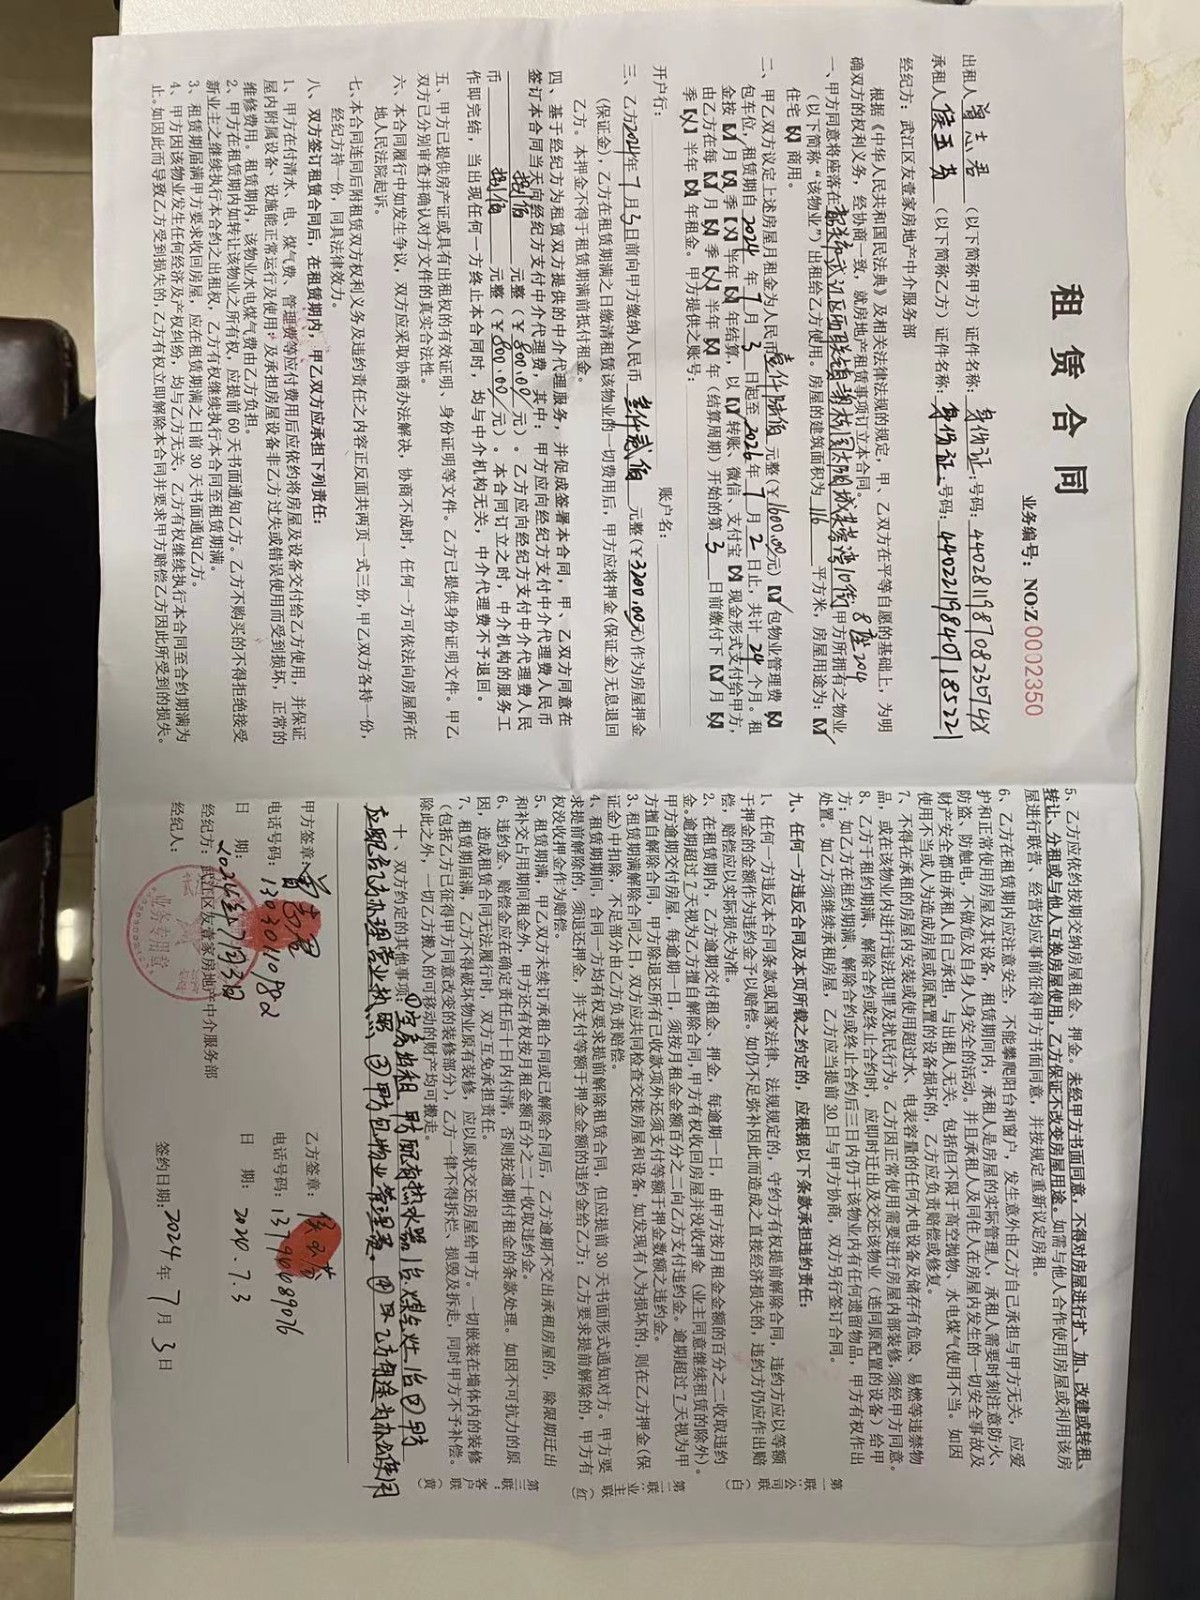 租 赁 合 同
业务编号：NO:Z 0002350
出租人 曾志君 （以下简称甲方）证件名称：身份证 号码：
承租人 （以下简称乙方）证件名称：身份证 号码：
经纪方：武江区友壹家房地产中介服务部
根据《中华人民共和国民法典》及相关法律法规的规定，甲、乙双方在平等自愿的基础上，为明
确双方的权利义务，经协商一致，就房地产租赁事项订立本合同。
一、甲方同意将座落在 韶关市武江区 8座204 甲方所拥有之物业
（以下简称“该物业”）出租给乙方使用。房屋的建筑面积为 116 平方米，房屋用途为：【✓】
住宅【×】商用。
二、甲乙双方议定上述房屋月租金为人民币 壹仟陆佰 元整（￥1600.00元）【✓】包物业管理费【×】
包车位，租赁期自 2024 年 7 月 3 日起至 2026 年 7 月 2 日止，共计 24 个月。租
金按【✓】月【×】季【×】半年【×】年结算，以【✓】转账、微信、支付宝【×】现金形式支付给甲方，
由乙方在每【✓】月【×】季【×】半年【×】年（结算周期）开始的第 3 日前缴付下【✓】月【×】
季【×】半年【×】年租金。甲方提供之账号：
开户行： 账户名：
三、乙方2024年 7 月 3 日前向甲方缴纳人民币 叁仟贰佰 元整（￥3200.00元）作为房屋押金
（保证金），乙方在租赁期满之日缴清租赁该物业的一切费用后，甲方应将押金（保证金）无息退回
乙方。本押金不得于租赁期满前抵付租金。
四、基于经纪方为租赁双方提供的中介代理服务，并促成签署本合同，甲、乙双方同意在
签订本合同当天向经纪方支付中介代理费，其中：甲方应向经纪方支付中介代理费人民币
捌佰 元整（￥800.00元）。乙方应向经纪方支付中介代理费人民
币 捌佰 元整（￥800.00元）。本合同订立之时，中介机构的服务工
作即完结，当出现任何一方终止本合同时，均与中介机构无关，中介代理费不予退回。
五、甲方已提供房产证或具有出租权的有效证明、身份证明等文件。乙方已提供身份证明文件。甲乙
双方已分别审查并确认对方文件的真实合法性。
六、本合同履行中如发生争议，双方应采取协商办法解决，协商不成时，任何一方可依法向房屋所在
地人民法院起诉。
七、本合同连同后附租赁双方权利义务及违约责任之内容正反面共两页一式三份，甲乙双方各持一份，
经纪方持一份，同具法律效力。
八、双方签订租赁合同后，在租赁期内，甲乙双方应承担下列责任：
1、甲方在付清水、电、煤气费、管理费等应付费用后应依约将房屋及设备交付给乙方使用，并保证
屋内附属设备、设施能正常运行及使用；及承担房屋设备非乙方过失或错误使用而受到损坏，正常的
维修费用。租赁期内，该物业水电煤气费由乙方负担。
2、甲方在租赁期内如转让该物业之所有权，应提前 60 天书面通知乙方。乙方不购买的不得拒绝接受
新业主之继续执行本合约之出租权，乙方有权继续执行本合同至租赁期满。
3、租赁期届满甲方要求收回房屋，应在租赁期满之日前 30 天书面通知乙方。
4、甲方因该物业发生任何经济及产权纠纷，均与乙方无关，乙方有权继续执行本合同至合约期满为
止。如因此而导致乙方受到损失的，乙方有权立即解除本合同并要求甲方赔偿乙方因此所受到的损失。
5、乙方应依约按期交纳房屋租金、押金。未经甲方书面同意，不得对房屋进行扩、加、改建或转租、
转让、分租或与他人互换房屋使用，乙方保证不改变房屋用途。如需与他人合作使用房屋或利用该房
屋进行联营、经营均应事前征得甲方书面同意，并按规定重新议定房租。
6、乙方在租赁期内应注意安全，不能攀爬阳台和窗户，发生意外由乙方自己承担与甲方无关，应爱
护和正常使用房屋及其设备，租赁期间内，承租人是房屋的实际管理人，承租人需要时刻注意防火、
防盗、防触电，不做危及自身人身安全的活动。并且承租人及同住人在房屋内发生的一切安全事故及
财产安全都由承租人自己承担，与出租人无关，包括但不限于高空抛物、水电煤气使用不当。如因
使用不当或人为造成房屋或原配置的设备损坏的，乙方应负责赔偿或修复。
7、不得在承租的房屋内安装或使用超过水、电表容量的任何水电设备及储存有危险、易燃等违禁物
品，或在该物业内进行违法犯罪及扰民行为。乙方因正常使用需要进行房屋内部装修，须经甲方同意。
8、乙方于租约期满、解除合约或终止合约时，应即时迁出及交还该物业（连同原配置的设备）给甲
方；如乙方在租约期满，解除合约或终止合约后三日内仍于该物业内有任何遗留物品，甲方有权作出
处置。如乙方须继续承租房屋，乙方应当提前 30 日与甲方协商，双方另行签订合同。
九、任何一方违反合同及本页所载之约定的，应根据以下条款承担违约责任：
1、任何一方违反本合同条款或国家法律、法规规定的，守约方有权提前解除合同，违约方应以等额
于押金的金额作为违约金予以赔偿。如仍不足弥补因此而造成之直接经济损失的，违约方仍应作出赔
偿，赔偿应以实际损失为准。
2、在租赁期内，乙方逾期交付租金、押金，每逾期一日，由甲方按月租金金额的百分之二收取违约
金。逾期超过 7 天视为乙方擅自解除合同，甲方有权收回房屋并没收押金（业主同意继续租赁的除外）。
甲方逾期交付房屋，每逾期一日，须按月租金金额百分之二向乙方支付违约金。逾期超过 7 天视为甲
方擅自解除合同，甲方除退还所有已收款项外还须支付等额于押金数额之违约金。
3、租赁期满解除合同之日，双方应共同检查交接房屋和设备，如发现有人为损坏的，则在乙方押金（保
证金）中扣除，不足部分由乙方负责赔偿。
4、租赁期期间，合同一方均有权要求提前解除租赁合同，但应提前 30 天书面形式通知对方。甲方要
求提前解除的，须退还押金，并支付等额于押金金额的违约金给乙方；乙方要求提前解除的，甲方有
权没收押金作为赔偿。
5、租赁期满，甲乙双方未续订承租合同或已解除合同后，乙方逾期不交出承租房屋的，除限期迁出
和补交占用期间租金外，甲方还有权按月租金额百分之二十收取违约金。
6、违约金、赔偿金应在确定责任后十日内付清，否则按逾期付租金的条款处理。如因不可抗力的原
因，造成租赁合同无法履行时，双方互免承担责任。
7、租赁期届满，乙方不得破坏物业原有装修，应以原状交还房屋给甲方。一切嵌装在墙体内的装修
（包括乙方已征得甲方同意改变的装修部分），乙方一律不得拆烂、损毁及拆走，同时甲方不予补偿。
除此之外，一切乙方搬入的可移动的财产均可搬走。
十、双方约定的其他事项：①空房出租 甲方配有热水器1台煤气灶1台②甲方
应配合乙方办理营业执照 ③甲方包物业管理费。④ 乙方用途为办公使用
甲方签章：曾志君
电话号码：
日 期：2024年7月3日
经纪方：武江区友壹家房地产中介服务部
经纪人：
业务专用章
乙方签章：
电话号码：
日 期：2024.7.3
签约日期：2024 年 7 月 3 日
第一联：公司（白）
第二联：业主（红）
第三联：客户（黄）